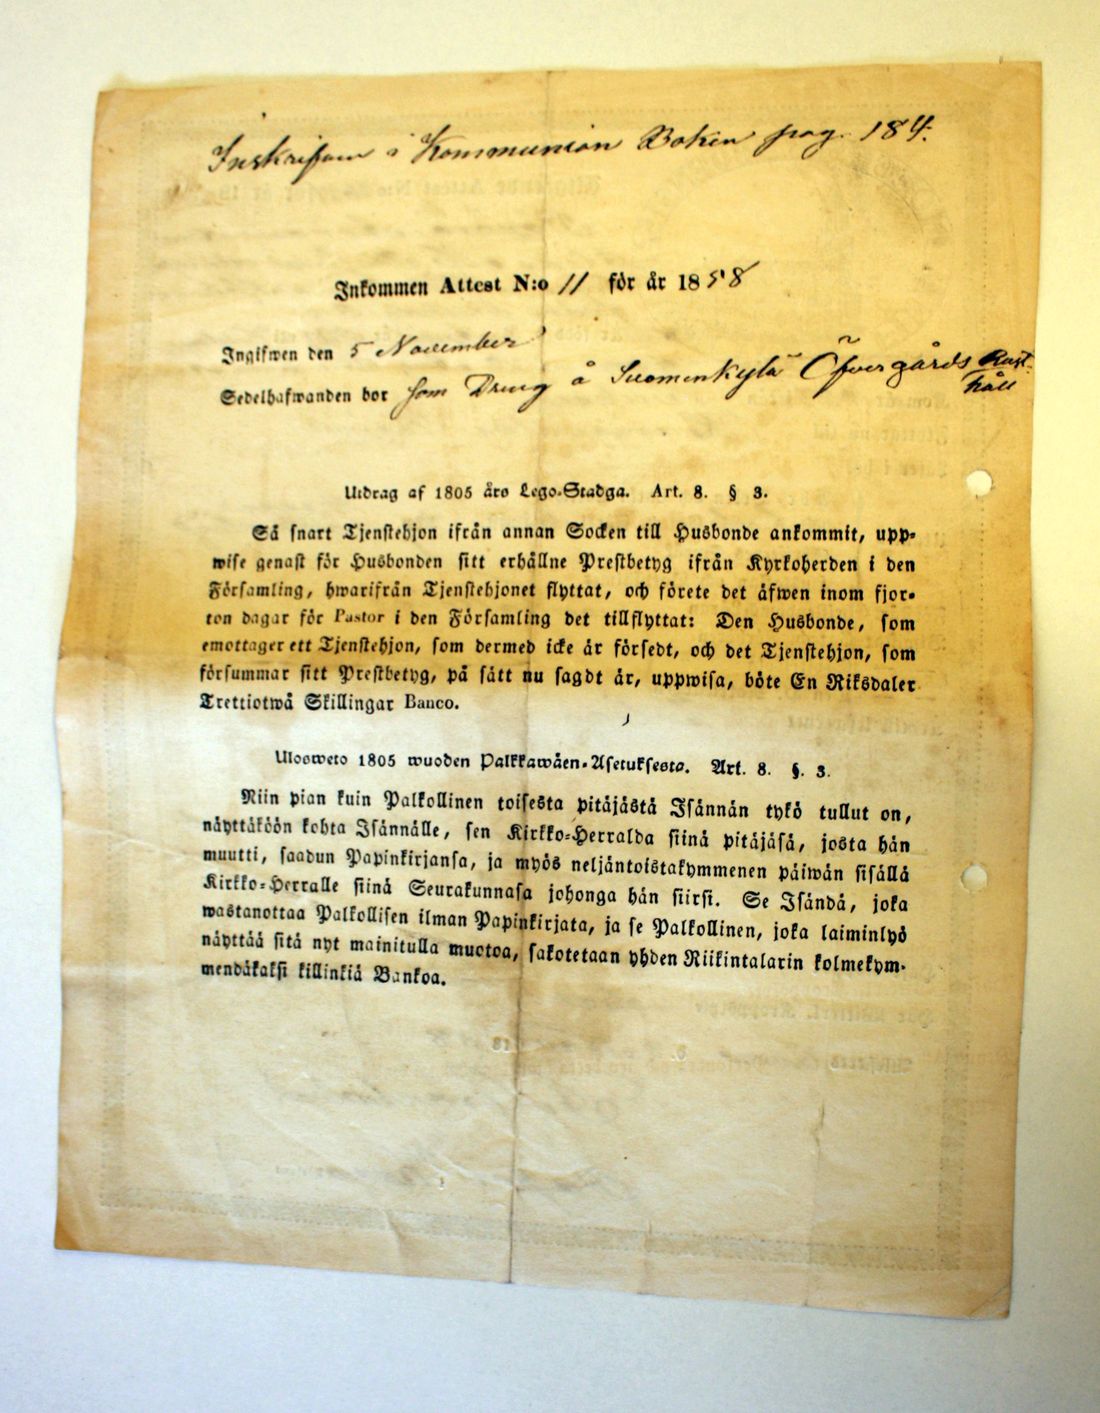 Inskrifven i Kommunion Boken pag. 184.
Inkommen Attest N:o 11 för år 1858
Ingifwen den 5 November
Sedelhafwanden bor som Dreng å Suomenkylä Öfvergårds Rust-
håll
Utdrag af 1805 års Lego-Stadga. Art. 8. § 3.
Så snart Tjenstehjon ifrån annan Socken till Husbonde ankommit, upp-
wise genast för Husbonden sitt erhållne Prestbetyg ifrån Kyrkoherden i den
Församling, hwarifrån Tjenstehjonet flyttat, och förete det äfwen inom fjor-
ton dagar för Pastor i den Församling det tillflyttat: Den Husbonde, som
emottager ett Tjenstehjon, som dermed icke är försedt, och det Tjenstehjon, som
försummar sitt Prestbetyg, på sätt nu sagdt är, uppwisa, böte En Riksdaler
Trettiotwå Skillingar Banco.
Ulosweto 1805 wuoden Palkkawäen-Asetuksesta. Art. 8. §. 3.
Niin pian kuin Palkollinen toisesta pitäjästä Isännän tykö tullut on,
näyttäköön kohta Isännälle, sen Kirkko-Herralda siinä pitäjäsä, josta hän
muutti, saadun Papinkirjansa, ja myös neljäntoistakymmenen päiwän sisällä
Kirkko-Herralle siinä Seurakunnasa johonga hän siirsi. Se Isändä, joka
wastanottaa Palkollisen ilman Papinkirjata, ja se Palkollinen, joka laiminlyö
näyttää sitä nyt mainitulla muotoa, sakotetaan yhden Riikintalarin kolmekym-
mendäkaksi killinkiä Bankoa.